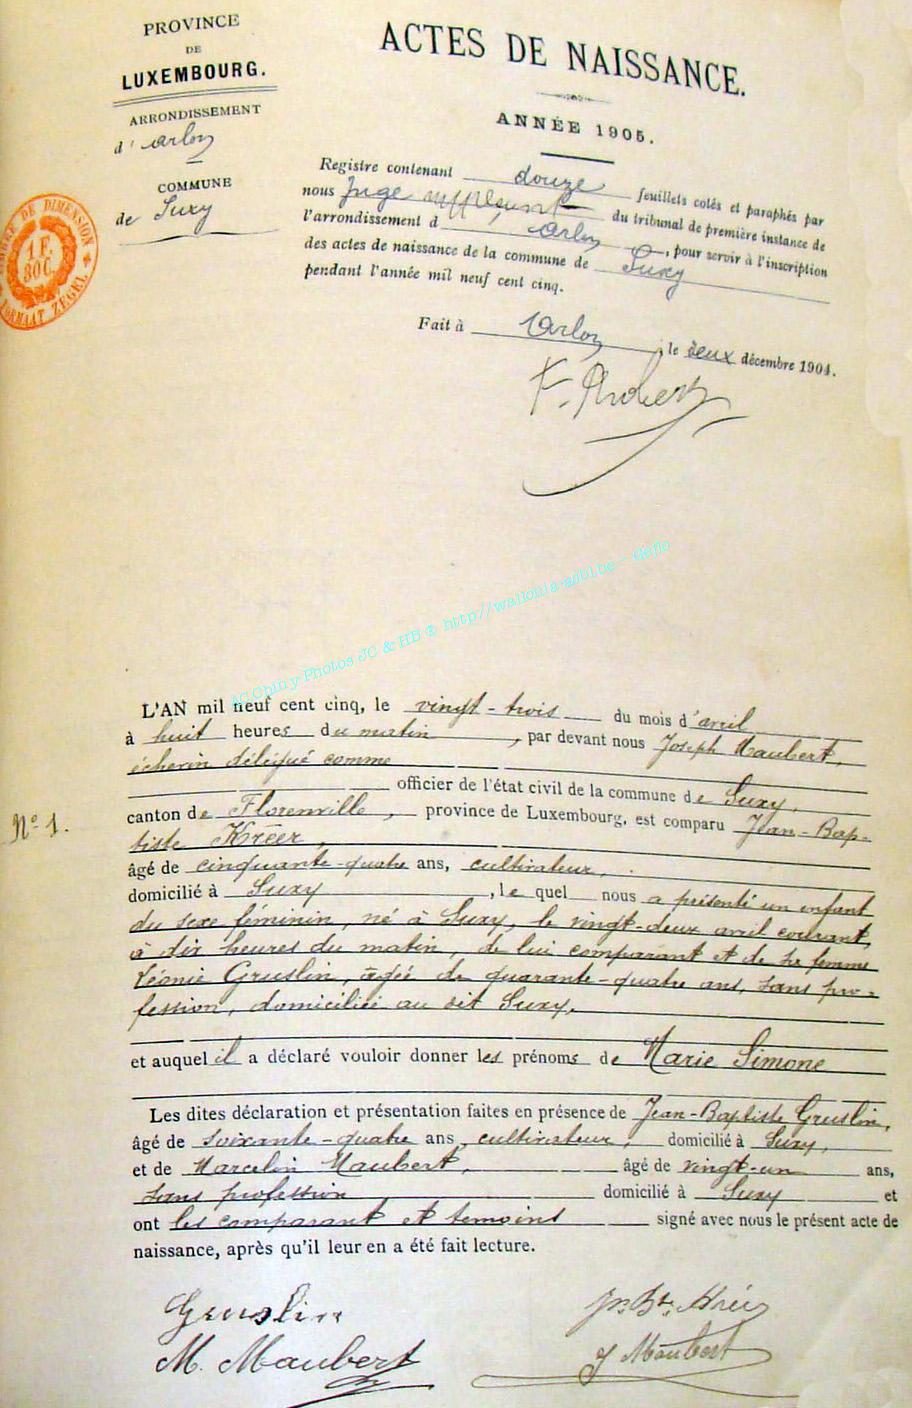 PROVINCE
DE
LUXEMBOURG.
ARRONDISSEMENT
d'Arlon
COMMUNE
de Suxy
TIMBRE DE DIMENSION
1 F.
80C.
FORMAAT ZEGEL
ACTES DE NAISSANCE.
ANNÉE 1905.
Registre contenant douze feuillets cotés et paraphés par
nous Juge suppléant du tribunal de première instance de
l'arrondissement d Arlon, pour servir à l'inscription
des actes de naissance de la commune de Suxy
pendant l'année mil neuf cent cinq.
Fait à Arlon, le deux décembre 1904.
AC Chiny Photos JC & HB © http//wallonia-asbl.be - Géflo
L'AN mil neuf cent cinq, le vingt-trois du mois d'avril
à huit heures du matin, par devant nous Joseph Maubert,
échevin délégué comme
officier de l'état civil de la commune de Suxy,
N° 1.
canton de Florenville, province de Luxembourg, est comparu Jean-Bap-
tiste Kréer,
âgé de cinquante-quatre ans, cultivateur,
domicilié à Suxy, le quel nous a présenté un enfant
du sexe féminin, né à Suxy, le vingt-deux avril courant,
à dix heures du matin, de lui comparant et de sa femme
Léonie Gruslin, âgée de quarante-quatre ans, sans pro-
fession, domiciliée au dit Suxy,
et auquel il a déclaré vouloir donner les prénoms de Marie Simone
Les dites déclaration et présentation faites en présence de Jean-Baptiste Gruslin,
âgé de soixante-quatre ans, cultivateur, domicilié à Suxy,
et de Marcelin Maubert, âgé de vingt-un ans,
sans profession domicilié à Suxy et
ont les comparant et temoins signé avec nous le présent acte de
naissance, après qu'il leur en a été fait lecture.
Gruslin
M. Maubert
J. Maubert